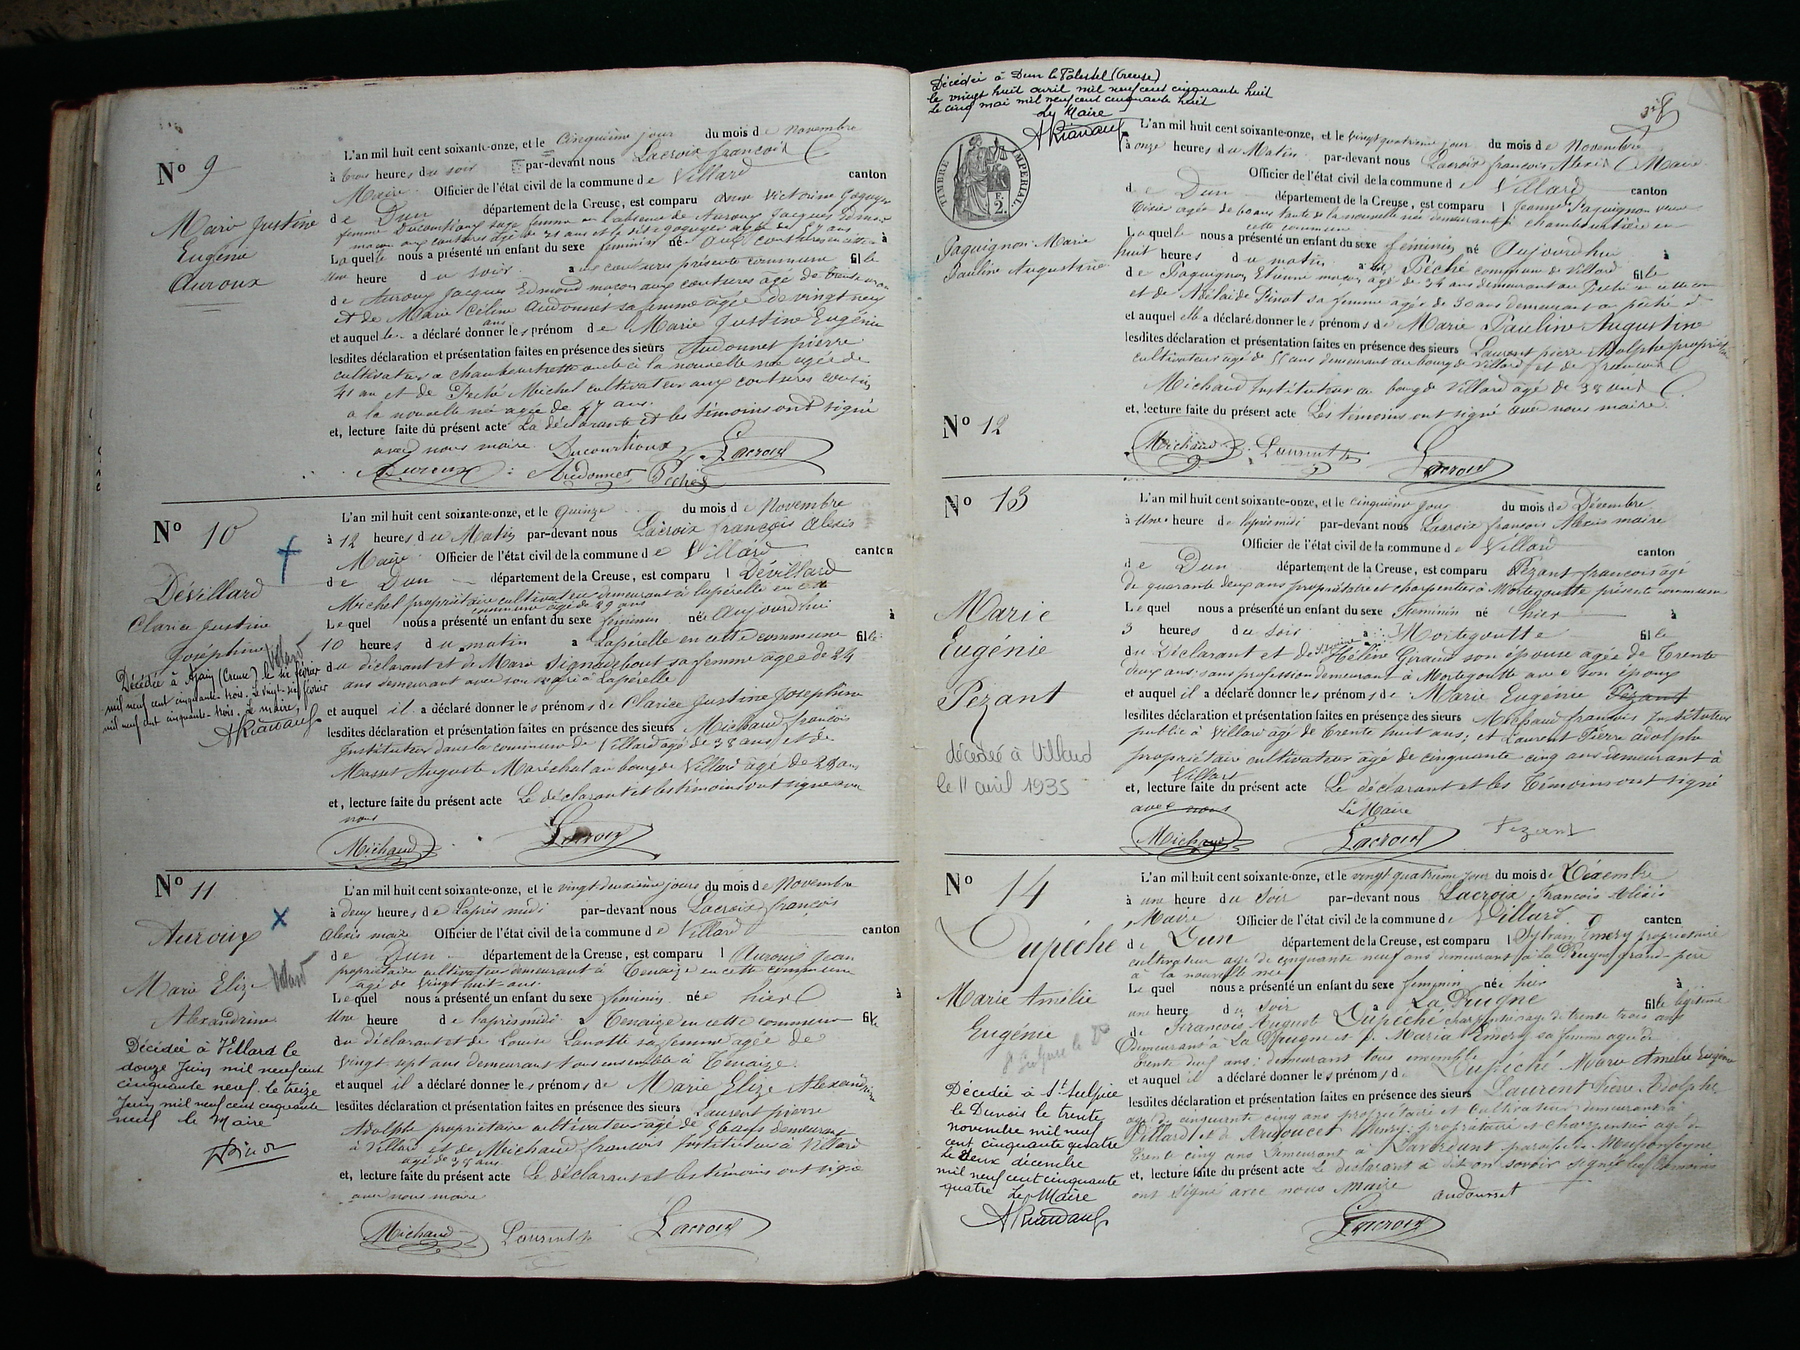 No 9
Marie Justine
Eugénie
Auroux
L'an mil huit cent soixante-onze, et le Cinquième jour du mois de Novembre
à trois heures du soir par-devant nous Lacroix françois
Maire Officier de l'état civil de la commune de Villard canton
de Dun département de la Creuse, est comparu
Laquelle nous a présenté un enfant du sexe féminin né à
Une heure du soir a aux coutures présente commune fille
de Auroux Jacques Edmond maçon aux coutures âgé de trente
et de Marie Céline Audonnet sa femme âgée de vingt neuf
ans
et auquel a déclaré donner les prénom de Marie Justine Eugénie
lesdites déclaration et présentation faites en présence des sieurs Audonnet pierre
cultivateur a oncle à la nouvelle née agée de
41 an et de Péché Michel cultivateur aux coutures cousin
a la nouvelle né agée de 47 ans.
et, lecture faite du présent acte La déclarante et les témoins ont signé
avec nous maire Ducourtioux Lacroix
Auroux Audonnet Péché
No 10
Dévillard
Clarice Justine
Joséphine
Villard
Décédée à Ajain (Creuse) le février
mil neuf cent cinquante trois. Le vingt février
mil neuf cent cinquante trois. Le maire,
L'an mil huit cent soixante-onze, et le Quinze du mois de Novembre
à 12 heures du Matin par-devant nous Lacroix François Alexis
Maire Officier de l'état civil de la commune de Villard canton
de Dun département de la Creuse, est comparu Dévillard
Michel propriétaire cultivateur demeurant à lapérelle en cette
commune âgé de 29 ans
Lequel nous a présenté un enfant du sexe féminin née aujourdhui à
10 heures du matin a Lapérelle en cette commune fille
du déclarant et de Marie sa femme agée de 24
ans demeurant avec son mari à Lapérelle
et auquel il a déclaré donner les prénoms de Clarice Justine Joséphine
lesdites déclaration et présentation faites en présence des sieurs Michaud françois
Instituteur dans la commune de Villard agé de 38 ans et de
Auguste Maréchal au bourg de Villard âgé de 28 ans
et, lecture faite du présent acte Le déclarant et les témoins ont signé avec
nous
Michaud Lacroix
No 11
Auroux
Marie Elize
Alexandrine
Villard
Décédée à Villard le
douze Juin mil neuf cent
cinquante neuf. le treize
Juin mil neuf cent cinquante
neuf le Maire
L'an mil huit cent soixante-onze, et le vingt deuxième jours du mois de Novembre
à deux heures de Laprès midi par-devant nous Lacroix françois
Alexis maire Officier de l'état civil de la commune de Villard canton
de Dun département de la Creuse, est comparu Auroux Jean
propriétaire cultivateur demeurant à Tenaize en cette commune
agé de vingt huit ans.
Lequel nous a présenté un enfant du sexe féminin née hier à
Une heure de laprès midi a Tenaize en cette commune fille
du déclarant et de Louise Lanotte sa femme agée de
vingt sept ans demeurant tous ensemble à Tenaize
et auquel il a déclaré donner les prénoms de Marie Elize Alexandrine
lesdites déclaration et présentation faites en présence des sieurs Laurent pierre
Adolphe propriétaire cultivateur agé de ans demeurant
à Villard et de Michaud françois Instituteur à Villard
et, lecture faite du présent acte Le déclarant et les témoins ont signé
avec nous maire
Michaud Laurent Lacroix
Décédée à Dun le Palestel (Creuse)
le vingt huit avril mil neuf cent cinquante huit
le cinq mai mil neuf cent cinquante huit
Le Maire
TIMBRE IMPÉRIAL
F. 2.
Paquignon Marie
Pauline Augustine
No 12
L'an mil huit cent soixante-onze, et le vingt quatrième jour du mois de Novembre
à onze heures du Matin par-devant nous Lacroix françois Alexis Maire
Officier de l'état civil de la commune de Villard canton
de Dun département de la Creuse, est comparu Jeanne Paquignon veuve
agée de 60 ans tante de la nouvelle née demeurant à en
cette commune
Laquelle nous a présenté un enfant du sexe féminin né Aujourdhui à
huit heures du matin a Péché commune de Villard fille
de Paquignon Etienne maçon agé de 34 ans demeurant au Péché
et de Adélaïde Pinot sa femme agée de 30 ans demeurant au péché
et auquel elle a déclaré donner les prénoms de Marie Pauline Augustine
lesdites déclaration et présentation faites en présence des sieurs Laurent pierre Adolphe propriétaire
cultivateur agé de 55 ans demeurant au bourg de Villard et de françois
Michaud Instituteur au bourg de Villard agé de 38 ans
et, lecture faite du présent acte Les témoins ont signé avec nous maire
Michaud Laurent Lacroix
No 13
Marie
Eugénie
Pezant
décédée à Villard
le 11 avril 1935
L'an mil huit cent soixante-onze, et le cinquième jour du mois de Décembre
à Une heure de laprès midi par-devant nous Lacroix françois Alexis maire
Officier de l'état civil de la commune de Villard canton
de Dun département de la Creuse, est comparu Pezant françois âgé
de quarante deux ans propriétaire et charpentier à Mortegoutte présente commune
Lequel nous a présenté un enfant du sexe féminin né hier à
3 heures du soir a Mortegoutte fille
du Déclarant et de Hélène Giraud son épouse agée de Trente
deux ans sans profession demeurant à Mortegoutte avec son époux
et auquel il a déclaré donner les prénoms de Marie Eugénie Pezant
lesdites déclaration et présentation faites en présence des sieurs Michaud françois Instituteur
public à Villard âgé de trente huit ans; et Laurent Pierre adolphe
propriétaire cultivateur âgé de cinquante cinq ans demeurant à
Villard
et, lecture faite du présent acte Le déclarant et les Témoins ont signé
avec nous Le Maire
Michaud Lacroix Pezant
No 14
Dupéché
Marie Amélie
Eugénie
Décédée à St Sulpice
le Dunois le trente
novembre mil neuf
cent cinquante quatre
le deux décembre
mil neuf cent cinquante
quatre Le Maire
L'an mil huit cent soixante-onze, et le vingt quatrième jour du mois de Décembre
à une heure du Soir par-devant nous Lacroix François Alexis
Maire Officier de l'état civil de la commune de Villard canton
de Dun département de la Creuse, est comparu Sylvain Emery propriétaire
cultivateur age de cinquante neuf ans demeurant à La Prugne grand-père
à la nouvelle née
Lequel nous a présenté un enfant du sexe féminin née hier à
une heure du Soir a La Prugne fille légitime
de François August Dupéché charpentier age de trente trois ans
Demeurant à La Prugne et de Maria Emery sa femme age de
trente neuf ans: demeurant tous ensemble
et auquel il a déclaré donner les prénoms de Dupéché Marie Amélie Eugénie
lesdites déclaration et présentation faites en présence des sieurs Laurent Pierre Adolphe
age de cinquante cinq ans propriétaire et cultivateur demeurant à
Villard et de propriétaire et charpentier age de
trente cinq ans Demeurant à
et, lecture faite du présent acte Le déclarant à dit on savoir signé les témoins
ont signé avec nous Maire audounet
Lacroix